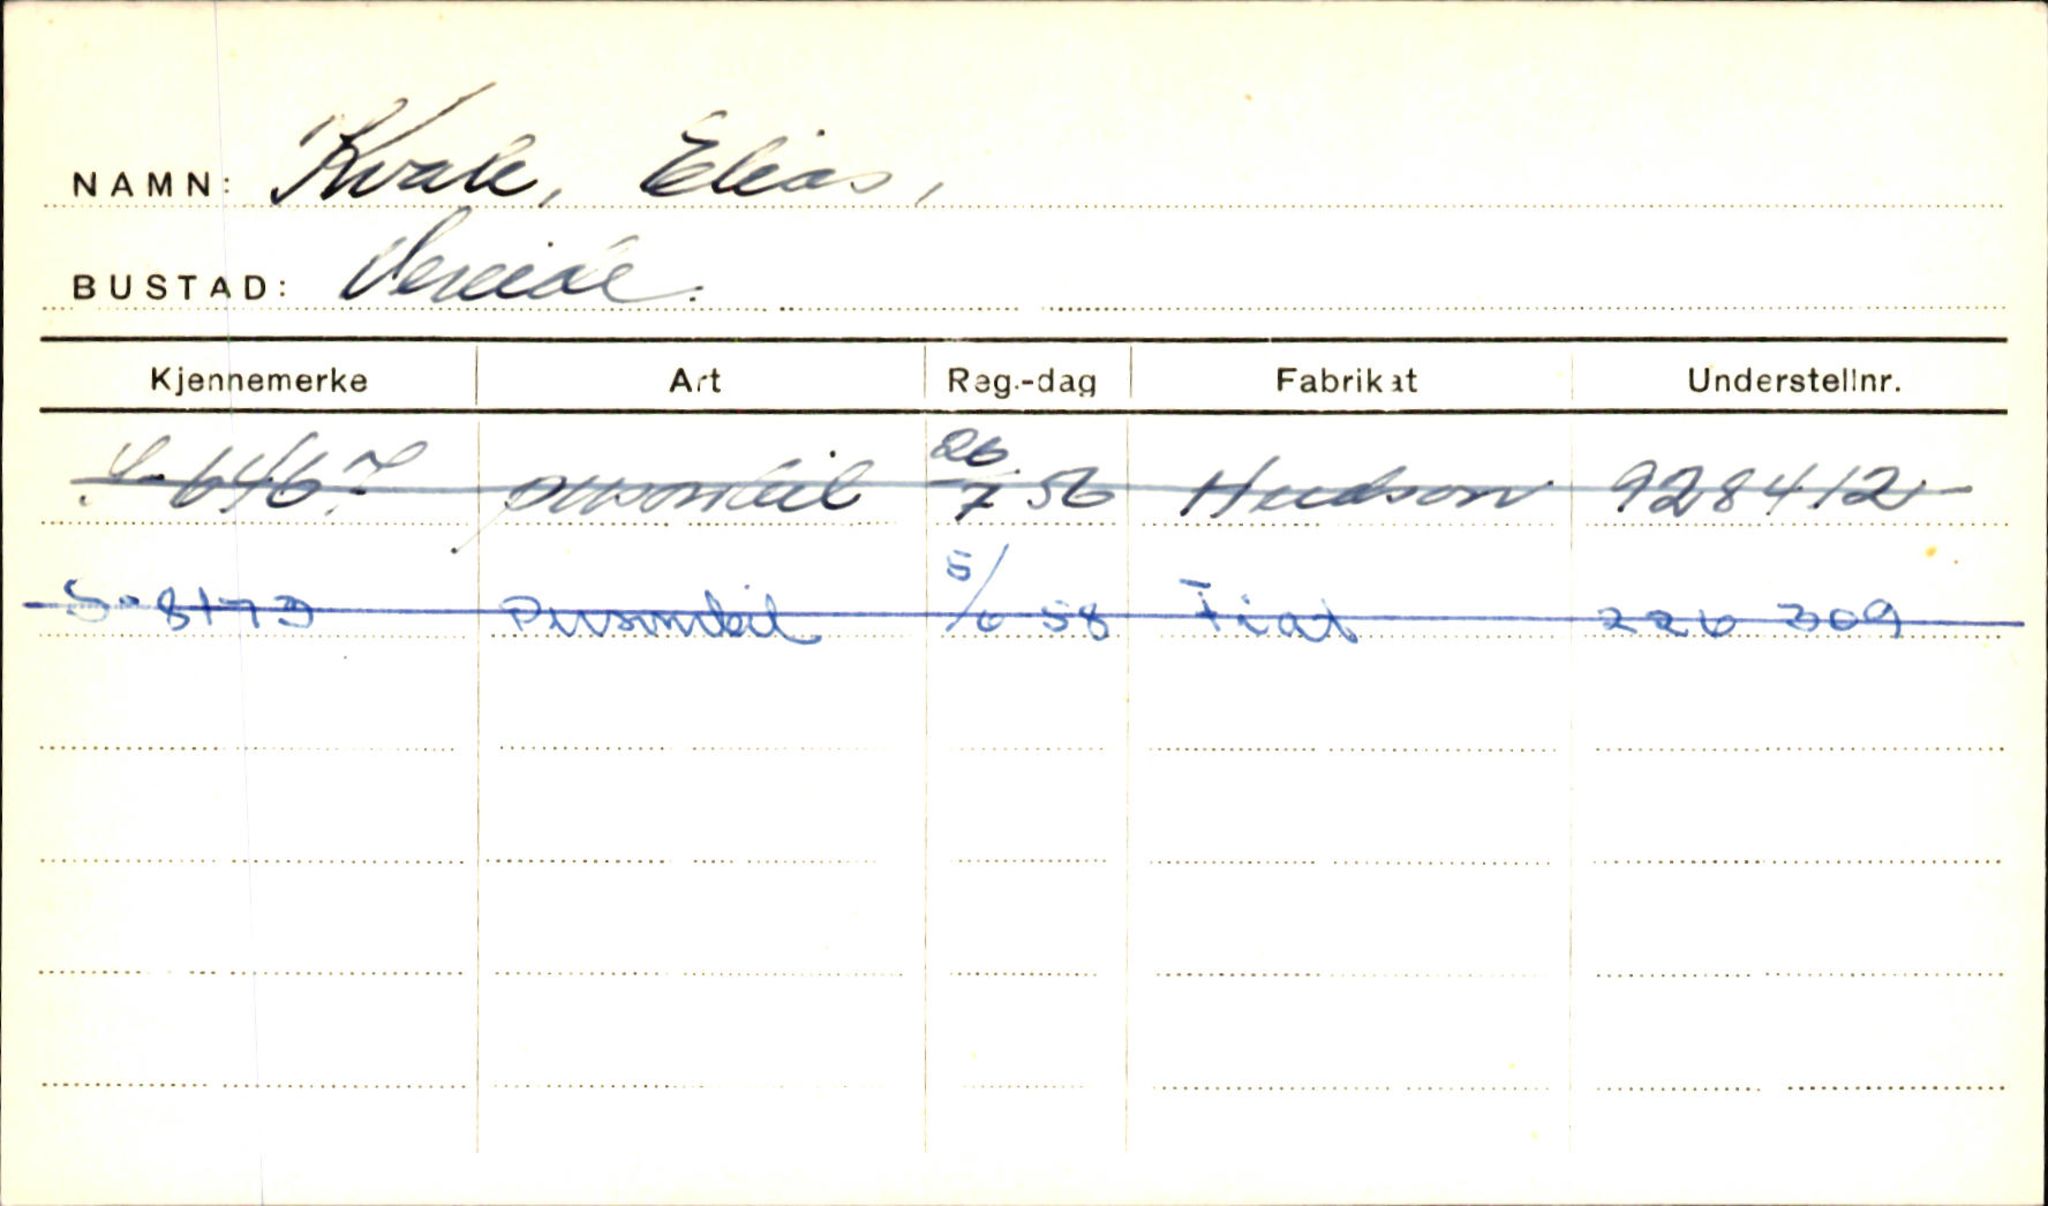 NAMN: Kvale, Elias,
BUSTAD: Vereide.
Kjennemerke Art Reg.-dag Fabrikat Understellnr.
S-6467 personbil 26/7 56 Hudson 928412
S-8173 Personbil 5/6 58 Fiat 226 309